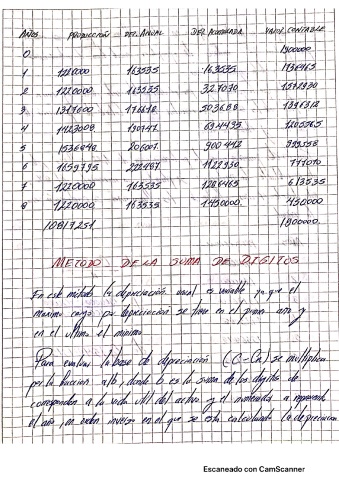 AÑOS PRODUCCIÓN DEP. ANUAL DEP. ACUMULADA VALOR CONTABLE
0 1900000
1 1220000 163535 163535 1736465
2 1220000 163535 327070 1572930
3 1317600 176618 503688 1396312
4 1423008 190747 694435 1205565
5 1536848 206007 900442 999558
6 1659795 222487 1122930 777070
7 1220000 163535 1286465 613535
8 1220000 163535 1450000 450000
10817251 1900000
METODO DE LA SUMA DE DIGITOS
En este método la depreciación anual es variable ya que el
maximo cargo por depreciación se tiene en el primer año y
en el ultimo el minimo
Para evaluar la base de depreciación (C-Cn) se multiplica
por la fraccion a/b, donde b es la suma de los digitos de
corresponden a la vida util del activo y el numerador a representa
el año, en orden inverso en el que se esta calculando la depreciacion
Escaneado con CamScanner